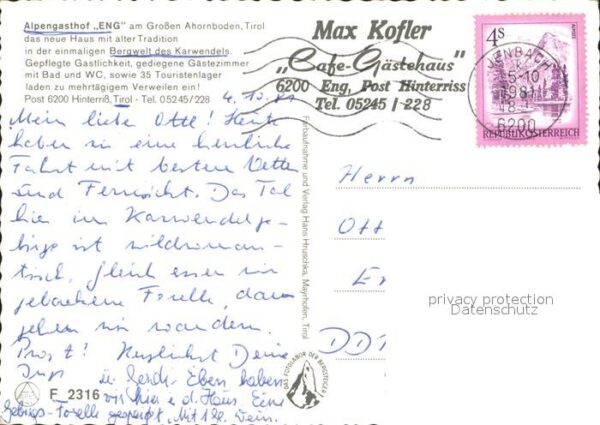 Alpengasthof „ENG" am Großen Ahornboden, Tirol
das neue Haus mit alter Tradition
in der einmaligen Bergwelt des Karwendels.
Gepflegte Gastlichkeit, gediegene Gästezimmer
mit Bad und WC, sowie 35 Touristenlager
laden zu mehrtägigem Verweilen ein!
Post 6200 Hinterriß, Tirol - Tel. 05245/228
Max Kofler
„Cafe-Gästehaus"
6200 Eng, Post Hinterriss
Tel. 05245 / 228
4 S
REPUBLIK ÖSTERREICH
JENBACH
5-10
1981
18
6200
4.10.81
Mein liebe Otti! Heute
haben wir eine herrliche
Fahrt mit bestem Wetter
und Fernsicht. Das Tal
hier im Karwendelge-
birge ist wildroman-
tisch. Gleich essen wir
gebackene Forelle, dann
gehen wir wandern.
Prost! Herzlichst Deine
Inge
u. Gerdi. Eben haben
wir hier i. d. Haus Eine
Gebirgs-Forelle gespeist, Mit 1 Gl. Wein.
Herrn
Ott
DD
Farbaufnahme und Verlag Hans Hruschka, Mayrhofen, Tirol
DAS FOTOLABOR DER BERGSTEIGER
F 2316
privacy protection
Datenschutz